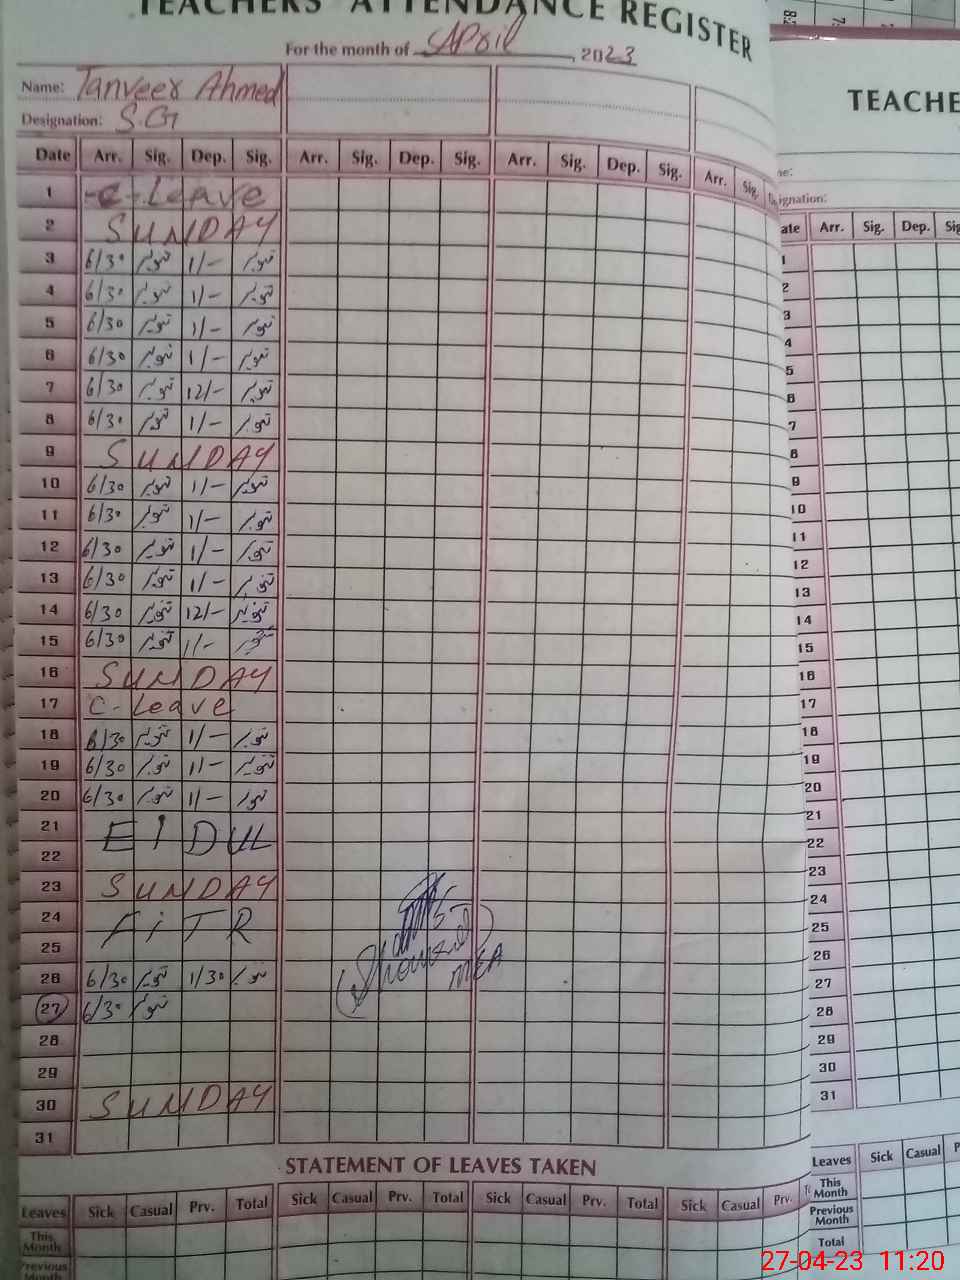 TEACHERS' ATTENDANCE REGISTER
For the month of April, 2023
Name: Tanveer Ahmed
Designation: S.G
Date Arr. Sig. Dep. Sig. Arr. Sig. Dep. Sig. Arr. Sig. Dep. Sig. Arr. Sig.
1 -C-Leave
2 SUNDAY
3 6/30 تنویر 1/- تنویر
4 6/30 تنویر 1/- تنویر
5 6/30 تنویر 1/- تنویر
6 6/30 تنویر 1/- تنویر
7 6/30 تنویر 12/- تنویر
8 6/30 تنویر 1/- تنویر
9 SUNDAY
10 6/30 تنویر 1/- تنویر
11 6/30 تنویر 1/- تنویر
12 6/30 تنویر 1/- تنویر
13 6/30 تنویر 1/- تنویر
14 6/30 تنویر 12/- تنویر
15 6/30 تنویر 1/- تنویر
16 SUNDAY
17 C-Leave
18 6/30 تنویر 1/- تنویر
19 6/30 تنویر 1/- تنویر
20 6/30 تنویر 1/- تنویر
21 EID UL
22
23 SUNDAY
24 FiTR
25
26 6/30 تنویر 1/30 تنویر
27 6/30 تنویر
MEA
28
29
30 SUNDAY
31
STATEMENT OF LEAVES TAKEN
Leaves Sick Casual Prv. Total Sick Casual Prv. Total Sick Casual Prv. Total Sick Casual Prv.
This Month
Previous Month
TEACHE
Arr. Sig. Dep.
1
2
3
4
5
6
7
8
9
10
11
12
13
14
15
16
17
18
19
20
21
22
23
24
25
26
27
28
29
30
31
Leaves Sick Casual
This Month
Previous Month
Total
27-04-23 11:20